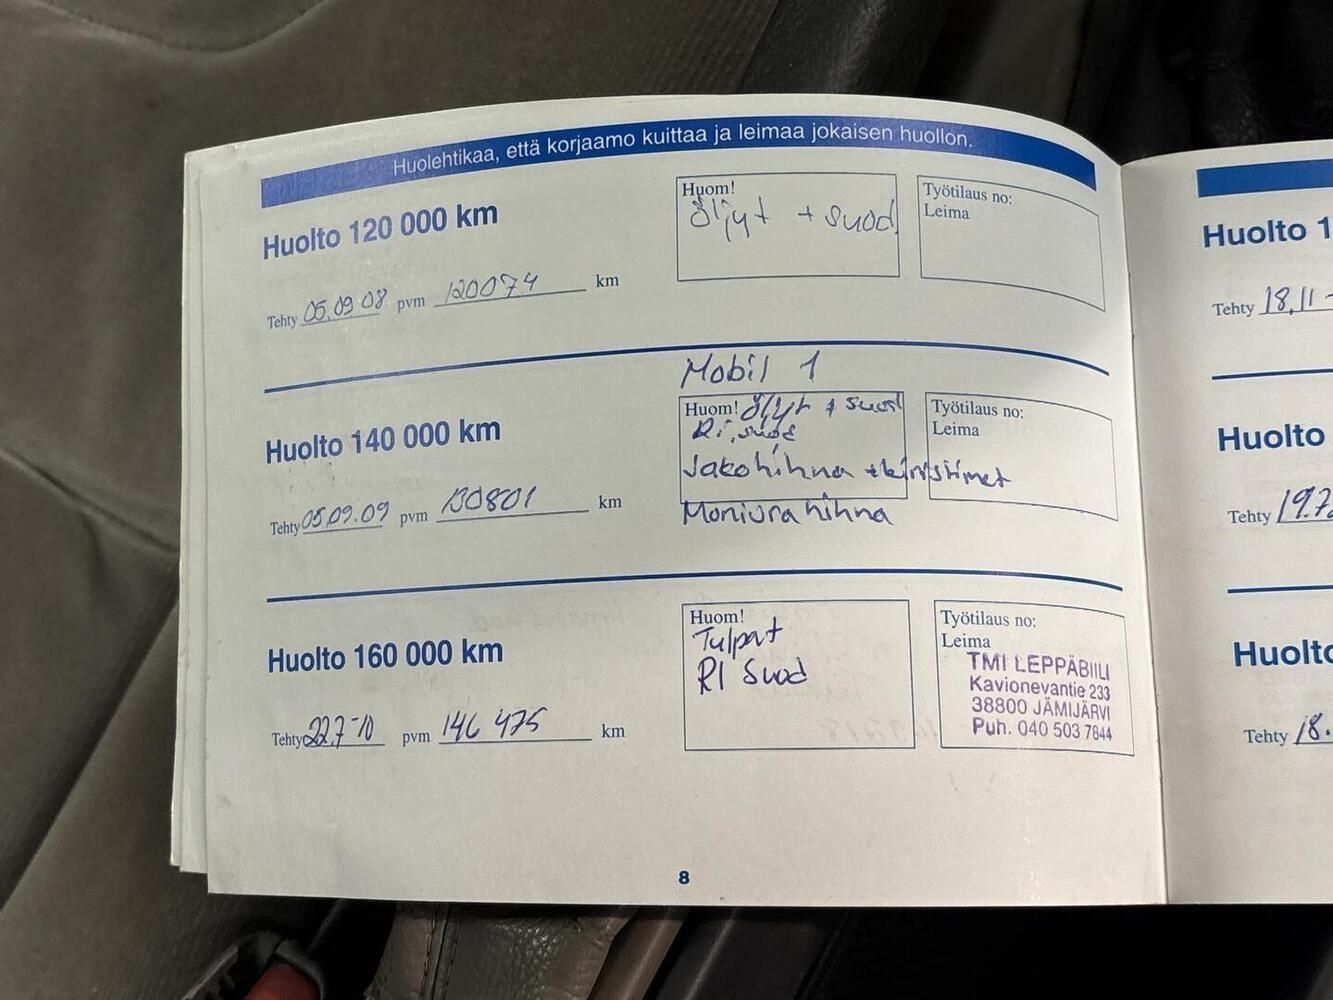 Huolehtikaa, että korjaamo kuittaa ja leimaa jokaisen huollon.
Huolto 120 000 km
Tehty 05.09.08 pvm 120074 km
Huom!
Öljyt + suod.
Työtilaus no:
Leima
Mobil 1
Huolto 140 000 km
Tehty 05.09.09 pvm 130801 km
Huom! Öljyt + suod
Ri.suod
Jakohihna + kiristimet
Moniurahihna
Työtilaus no:
Leima
Huolto 160 000 km
Tehty 22.7-10 pvm 146 475 km
Huom!
Tulpat
RI Suod
Työtilaus no:
Leima
TMI LEPPÄBIILI
Kavionevantie 233
38800 JÄMIJÄRVI
Puh. 040 503 7844
8
Huolto 1
Tehty 18.11-
Huolto
Tehty 19.7
Huolto
Tehty 18.